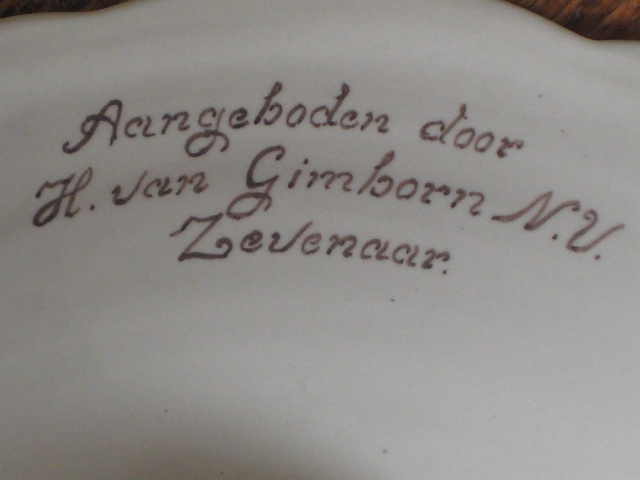 Aangeboden door
H. van Gimborn N.V.
Zevenaar.